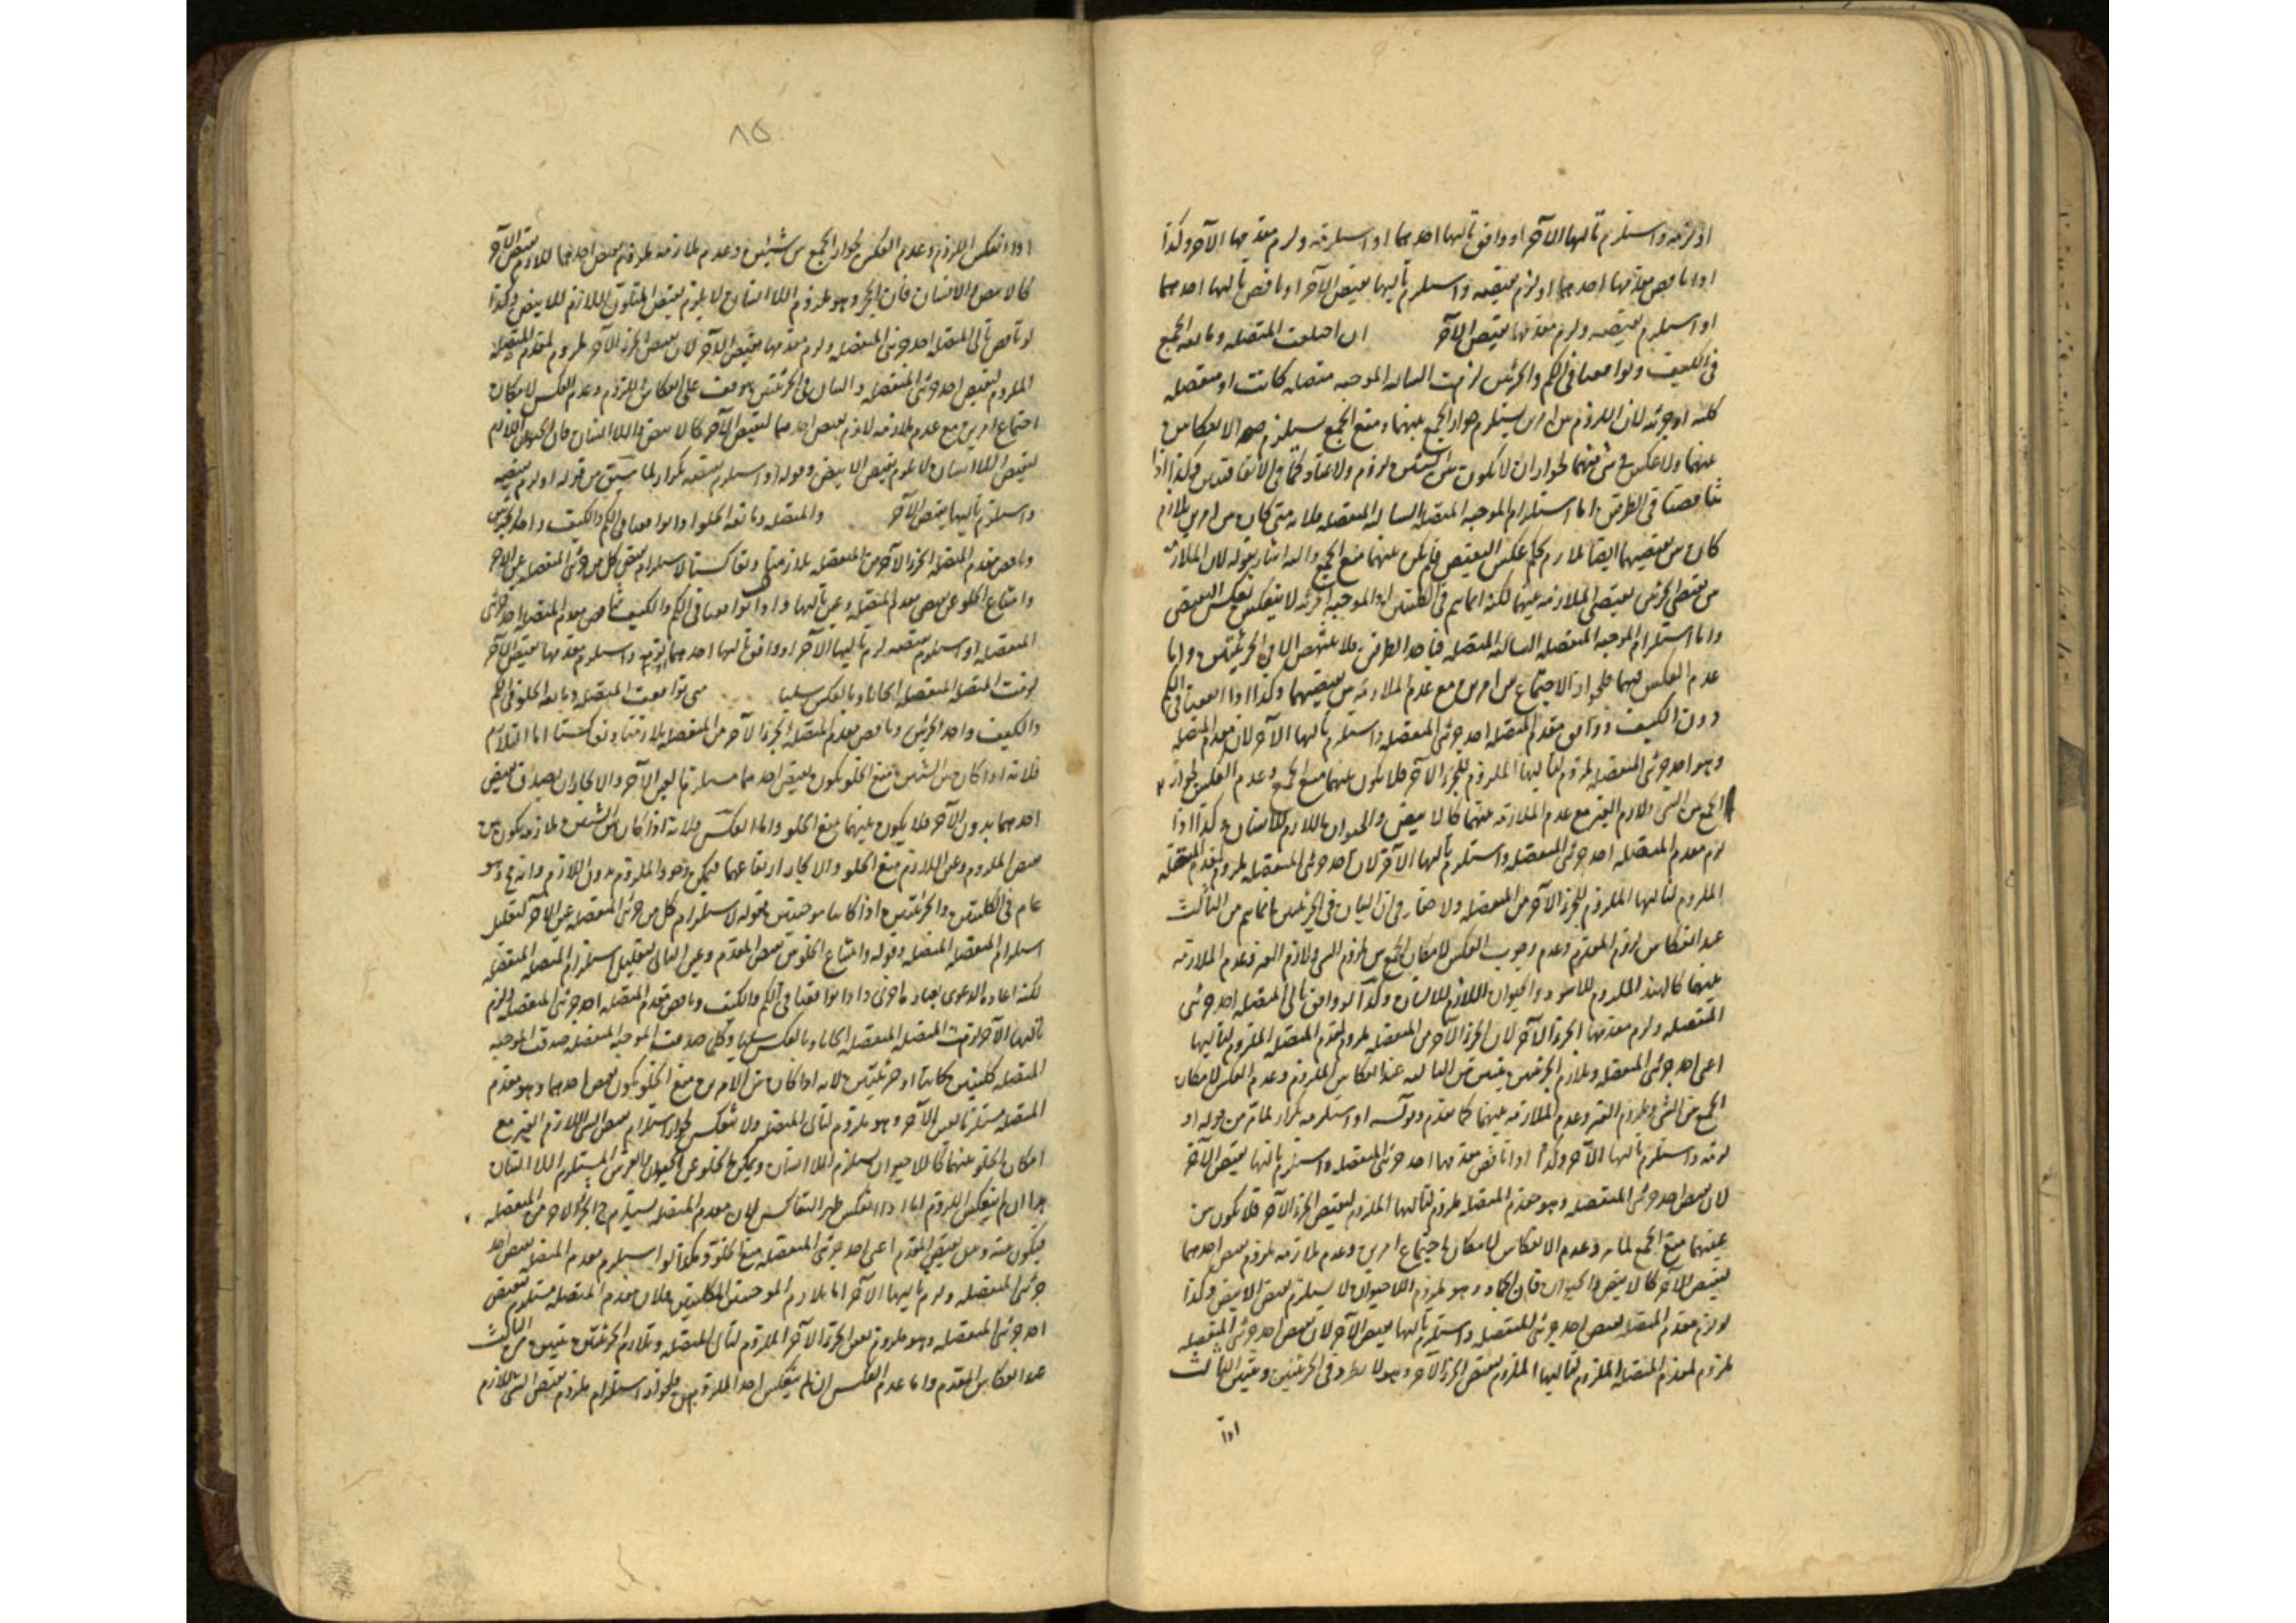 او لزمه واستلزم تاليها الآخر او وافق تاليها احدهما او استلزمه ولزم مقدمها الآخر وكذا
اذا ناقض مقدمها احدهما او لزم نقيضه واستلزم تاليها نقيض الآخر او ناقض تاليها احدهما
او استلزم نقيضه ولزم مقدمها نقيض الآخر ان اختلفت المتصله ومانعه الجمع
في الكيف وتوافقتا في الكم والجزئين لزمت السالبه الموجبه متصله كانت او منفصله
كليه او جزئيه لان اللزوم بين امرين يستلزم جواز الجمع بينهما ومنع الجمع يستلزم الانعكاس
بينهما ولا عكس في شئ منهما لجواز ان لا يكون بين الشيئين لزوم ولا عناد كما في الاتفاقيتين وكذا اذا
تناقضتا في الطرفين اما استلزام الموجبه المتصله السالبه المنفصله فلانه متى كان بين امرين تلازم
كان بين نقيضيهما ايضا تلازم بحكم عكس النقيض فلم يكن بينهما منع الجمع واليه اشار بقوله لان الملازمه
بين نقيضي الجزئين يقتضي الملازمه بينهما لكنه انما يتم في الكليتين اذ الموجبه الجزئيه لا ينعكس بعكس النقيض
واما استلزام الموجبه المنفصله السالبه المتصله
عدم العكس فيهما فلجواز الاجتماع بين امرين مع عدم الملازمه بين نقيضيهما وكذا اذا اتفقتا في الكم
دون الكيف ووافق مقدم المتصله احد جزئي المنفصله واستلزم تاليها الآخر لان مقدم المتصله
وهو احد جزئي المنفصله ملزوم لتاليها الملزوم للجزء الآخر فلا يكون بينهما منع الجمع وعدم العكس لجواز
الجمع بين الشئ ولازم الغير مع عدم الملازمه بينهما كالابيض والحيوان اللازم للانسان وكذا اذا
لزم مقدم المتصله احد جزئي المنفصله واستلزم تاليها الآخر لان احد جزئي المنفصله ملزوم لمقدم المتصله
الملزوم لتاليها الملزوم للجزء الآخر من المنفصله ولا خفاء في ان البيان في الجزئيتين انما يتم من الثالث
عند انعكاس لزوم المقدم وعدم وجوب العكس لامكان الجمع بين ملزوم الشئ ولازم الغير وعدم الملازمه
بينهما كالهند الملزوم للاسود والحيوان اللازم للانسان وكذا لو وافق تالي المتصله احد جزئي
المنفصله ولزم مقدمها الجزء الآخر لان الجزء الآخر من المنفصله ملزوم لمقدم المتصله الملزوم لتاليها
اعني احد جزئي المنفصله وتلازم الجزئيتين يتبين من الثالث عند انعكاس الملزوم وعدم العكس لامكان
الجمع بين الشئ وملزوم الغير وعدم الملازمه بينهما كما تقدم وقوله او استلزمه تكرار لما مر من قوله او
لزمه واستلزم تاليها الآخر وكذا اذا ناقض مقدمها احد جزئي المنفصله واستلزم تاليها نقيض الآخر
لان نقيض احد جزئي المنفصله وهو مقدم المتصله ملزوم لتاليها الملزوم لنقيض الجزء الآخر فلا يكون بين
عينيهما منع الجمع لما مر وعدم الانعكاس لامكان اجتماع امرين وعدم ملازمه ملزوم نقيض احدهما
لنقيض الآخر كالابيض والحيوان فان الجماد وهو ملزوم اللاحيوان لا يستلزم نقيض الابيض وكذا
لو لزم مقدم المتصله نقيض احد جزئي المنفصله واستلزم تاليها نقيض الآخر لان نقيض احد جزئي المنفصله
ملزوم لمقدم المتصله الملزوم لتاليها الملزوم لنقيض الجزء الآخر وهو لا يطرد في الجزئيتين ويتبين بالثالث
اذا
٨٥
اذا انعكس اللزوم وعدم العكس لجواز الجمع بين شيئين وعدم ملازمه ملزوم نقيض احدهما للازم نقيض الآخر
كالابيض والانسان فان الحجر وهو ملزوم اللاانسان لا يلزم نقيض المتلون اللازم للابيض وكذا
لو ناقض تالي المتصله احد جزئي المنفصله ولزم مقدمها نقيض الآخر لان نقيض الجزء الآخر ملزوم لمقدم المتصله
الملزوم لنقيض احد جزئي المنفصله والبيان في الجزئيتين يتوقف على انعكاس اللزوم وعدم العكس لامكان
اجتماع امرين مع عدم ملازمه لازم نقيض احدهما لنقيض الآخر كالابيض واللاانسان
لنقيض اللاانسان لا يلزم نقيض الابيض وقوله او استلزم نقيضه تكرار لما سبق من قوله او لزم نقيضه
واستلزم تاليها نقيض الآخر والمتصله ومانعه الخلو اذا توافقتا في الكم والكيف واحد الجزئين
وناقض مقدم المتصله الجزء الآخر من المنفصله تلازمتا وتعاكستا لاستلزام نقيض كل من جزئي المنفصله عين الآخر
وامتناع الخلو عن نقيض مقدم المتصله وعين تاليها واذا توافقتا في الكم والكيف وناقض مقدم المتصله احد جزئي
المنفصله او استلزم نقيضه لزم تاليها الآخر او وافق تاليها احدهما او لزمه واستلزم مقدمها نقيض الآخر
لزمت المتصله المنفصله ايجابا وبالعكس سلبا متى توافقت المتصله ومانعه الخلو في الكم
والكيف واحد الجزئين وناقض مقدم المتصله الجزء الآخر من المنفصله تلازمتا وتعاكستا اما التلازم
فلانه اذا كان بين الشيئين منع الخلو يكون نقيض احدهما مستلزما لعين الآخر والا لجاز ان يصدق نقيض
احدهما بدون الآخر فلا يكون بينهما منع الخلو واما العكس فلانه اذا كان بين الشيئين ملازمه يكون بين
نقيض الملزوم وعين اللازم منع الخلو والا لجاز ارتفاعهما فيمكن وجود الملزوم بدون اللازم وانه مح وهو
عام في الكليتين والجزئيتين اذا كانتا موجبتين فقوله لاستلزام كل من جزئي المنفصله عين الآخر تعليل
استلزام المنفصله المتصله وقوله وامتناع الخلو عن نقيض المقدم وعين التالي تعليل استلزام المتصله المنفصله
لكنه اعاد الدعوى بعباره اخرى واذا توافقتا في الكم والكيف وناقض مقدم المتصله احد جزئي المنفصله ولزم
تاليها الآخر لزمت المتصله المنفصله ايجابا وبالعكس سلبا وكلما صدقت الموجبه المنفصله صدقت الموجبه
المتصله كليتين كانتا او جزئيتين لانه اذا كان بين الامرين منع الخلو يكون نقيض احدهما وهو مقدم
المتصله مستلزما لعين الآخر وهو ملزوم لتالي المتصله ولا تنعكس لجواز استلزام نقيض الشئ اللازم الغير مع
امكان الخلو عنهما كاللاحيوان يستلزم اللاانسان ويمكن الخلو عن الحيوان والفرس المستلزم اللاانسان
هذا ان لم ينعكس اللزوم اما اذا انعكس ظهر التعاكس لان مقدم المتصله يستلزم ح الجزء الآخر من المنفصله
فيكون منه ومن نقيض المقدم اعني احد جزئي المنفصله منع الخلو وهكذا لو استلزم مقدم المتصله نقيض احد
جزئي المنفصله ولزم تاليها الآخر اما تلازم الموجبتين الكليتين فلان مقدم المتصله مستلزم لنقيض
احد جزئي المنفصله وهو ملزوم لعين الجزء الآخر الملزوم لتالي المتصله وتلازم الجزئيتين يتبين من الثالث
عند انعكاس المقدم واما عدم العكس ان لم ينعكس احد الملزومين فلجواز استلزام ملزوم نقيض الشئ اللازم